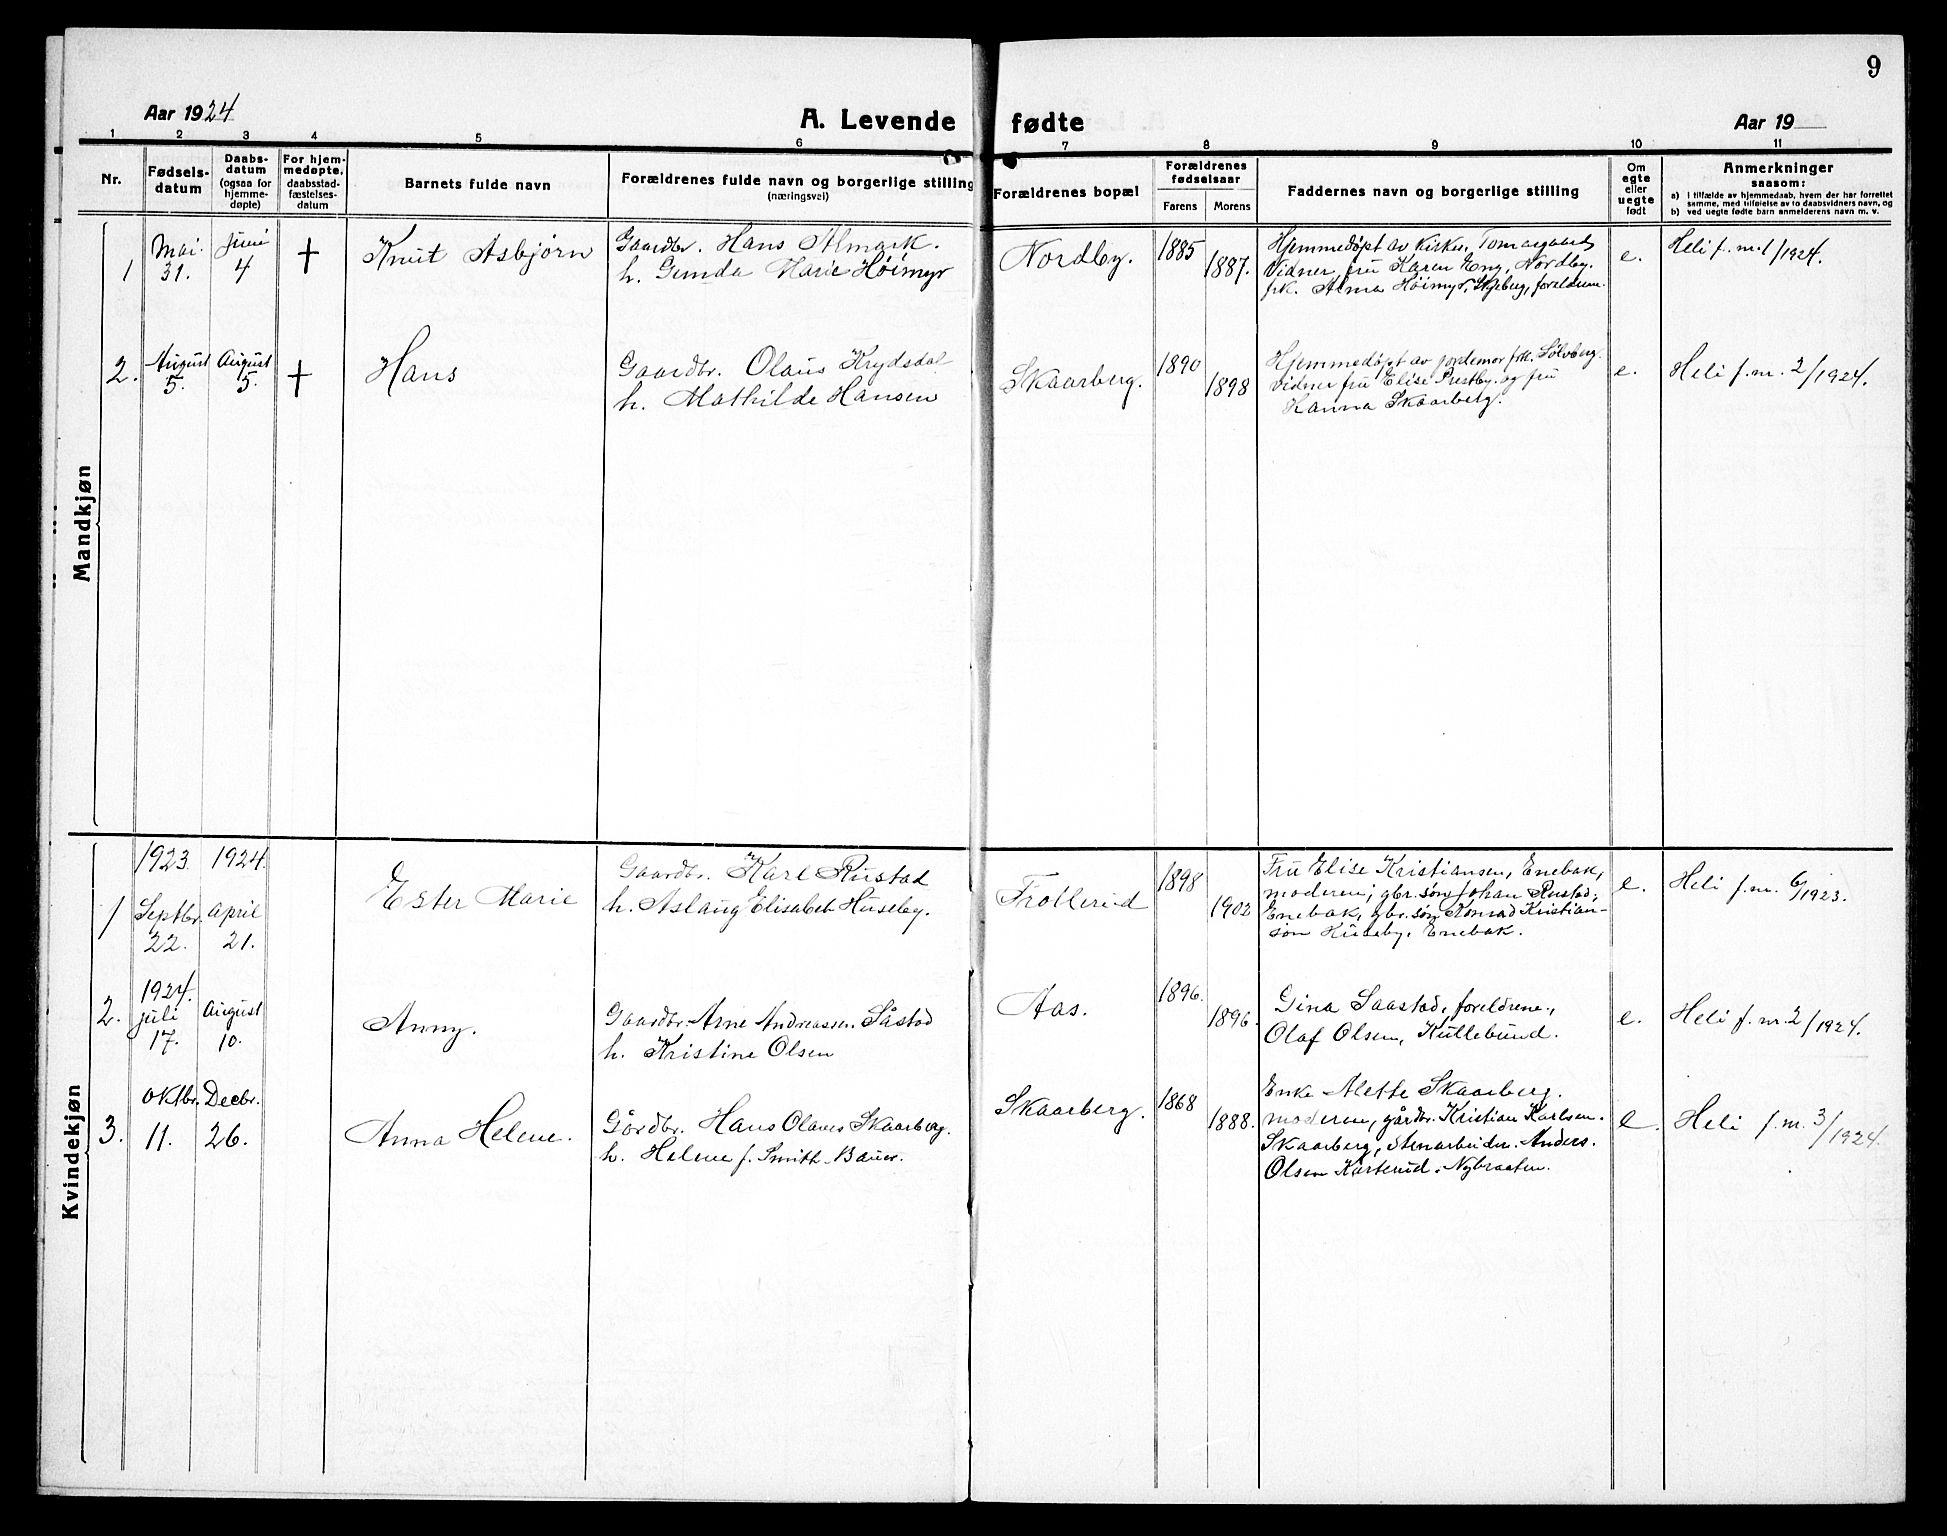 9
Aar 1924
A. Levende fødte
Aar 19
1 2 3 4 5 6 7 8 9 10 11
Nr.
Fødsels-
datum
Daabs-
datum
(ogsaa for
hjemme-
døpte)
For hjem-
medøpte.
daabsstad-
fæstelses-
datum
Barnets fulde navn
Forældrenes fulde navn og borgerlige stilling
(næringsvei)
Forældrenes bopæl
Forældrenes
fødselsaar
Farens Morens
Faddernes navn og borgerlige stilling
Om
egte
eller
uegte
født
Anmerkninger
saasom:
a) i tilfælde av hjemmedaab, hvem der har forrettet
samme, med tilføielse av to daabsvidners navn, og
b) ved uegte fødte barn anmelderens navn m. v.
Mandkjøn
1
Mai.
31.
Juni
4
+
Knut Asbjørn
Gaardbr. Hans Almark.
h. Gunda Marie Høimyr
Nordby.
1885
1887.
Hjemmedøpt av Kirkes.
Vidner, fru Karen Eng, Nordby.
frk. Alma Høimyr, Skjeberg, foreldrene.
e.
Heli f. nr. 1/1924.
2.
August
5.
August
5.
+
Hans
Gaardbr. Olaus Krydsdal
h. Mathilde Hansen
Skaarberg.
1890
1898
Hjemmedøpt av jordemor frk. Sølvberg.
Vidner fru Elise Prestby. og fru
Hanna Skaarberg.
e.
Heli f. nr. 2/1924.
Kvindekjøn
1
1923
Septbr.
22.
1924.
April
21.
Ester Marie
Gaardbr. Karl Rustad
h. Aslaug Elisabet Huseby.
Trollerud
1898
1902
Fru Elise Kristiansen, Enebak,
moderen; gbr. søn Johan Rustad,
Enebak, gbr. søn Konrad Kristian-
søn Huseby, Enebak.
e.
Heli f. nr. 6/1923.
2.
1924.
juli
17.
August
10.
Anny.
Gaardbr. Arne Andreassen Såstad
h. Kristine Olsen
Aas.
1896.
1896.
Gina Saastad, foreldrene,
Olaf Olsen, Kullebund.
e.
Heli f. nr. 2/1924.
3.
Oktbr.
11.
Decbr.
26.
Anna Helene.
Gårdbr. Hans Olaves Skaarberg.
h. Helene f. Smith-Bauer.
Skaarberg.
1868
1888.
Enke Alette Skaarberg.
moderen, gårdbr. Kristian Karlsen
Skaarberg, stenarbeider. Anders
Olsen Karterud. Nybraaten.
e.
Heli f. nr. 3/1924.